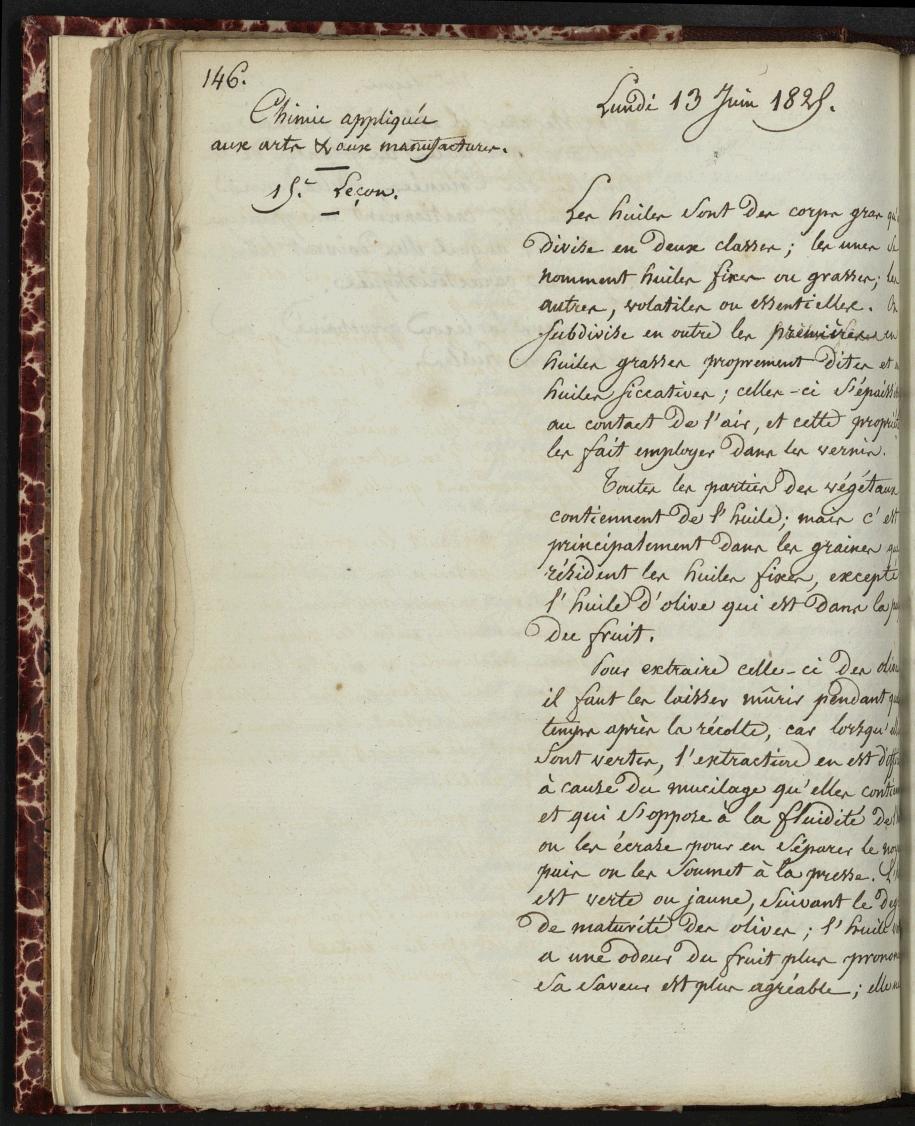 146.
Chimie appliquée
aux arts & aux manufactures.
15.e Leçon.
Lundi 13 Juin 1825.
Les huiles sont des corps gras qu'
divise en deux classes ; les unes se
nomment huiles fixes ou grasses ; les
autres, volatiles ou essentielles. On
subdivise en outre les premières en
huiles grasses proprement dites et
huiles siccatives ; celles-ci s'épaiss
au contact de l'air, et cette propriét
les fait employer dans les vernis.
Toutes les parties des végétaux
contiennent de l'huile ; mais c'est
principalement dans les graines qu
résident les huiles fixes, excepté
l'huile d'olive qui est dans la
du fruit.
Pour extraire celle-ci des oliv
il faut les laisser mûrir pendant qu
temps après la récolte, car lorsqu'ell
sont vertes, l'extraction en est diff
à cause du mucilage qu'elles contien
et qui s'oppose à la fluidité de l'
on les écrase pour en séparer le noy
puis on les soumet à la presse. L'
est verte ou jaune, suivant le deg
de maturité des olives ; l'huile
a une odeur du fruit plus pronon
sa saveur est plus agréable ; elle